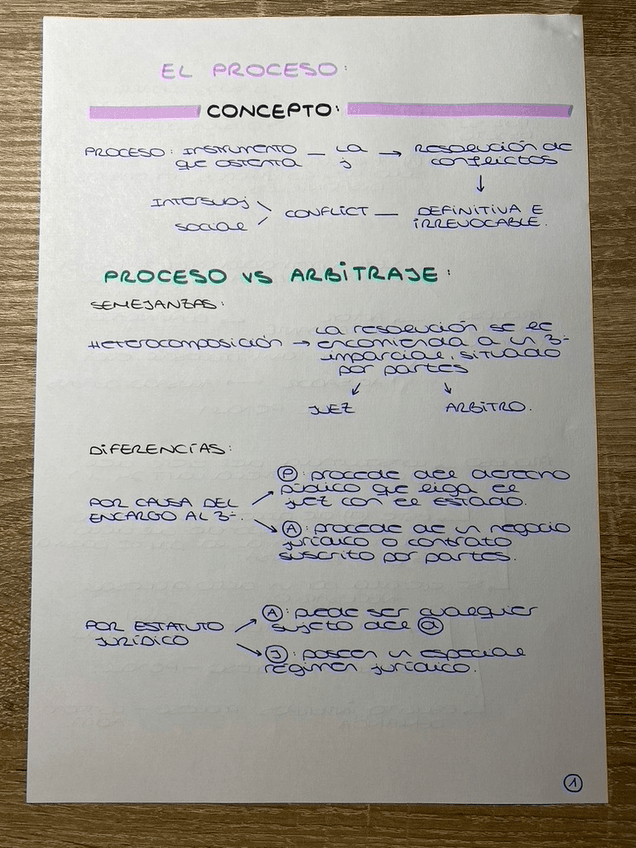 EL PROCESO:
CONCEPTO:
PROCESO: INSTRUMENTO — LA → RESOLUCIÓN DE
que ostenta j conflictos
↓
INTERSUBJ \ CONFLICT — DEFINITIVA E
SOCIAL / IRREVOCABLE.
PROCESO VS ARBITRAJE:
SEMEJANZAS:
La resolución se le
HETEROCOMPOSICIÓN → encomienda a un 3º
imparcial, situado
por partes
↙ ↘
JUEZ ARBITRO.
DIFERENCIAS:
Ⓟ: procede del derecho
POR CAUSA DEL público que liga el
ENCARGO AL 3º. juez con el estado.
Ⓐ: procede de un negocio
jurídico o contrato
suscrito por partes.
Ⓐ: puede ser cualquier
POR ESTATUTO sujeto del ⓓ
JURÍDICO Ⓙ: poseen un especial
régimen jurídico.
①